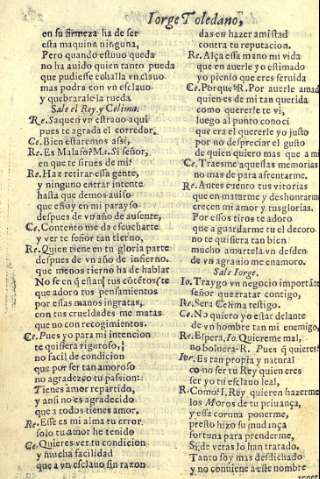 Iorge Toledano,
en su firmeza ha de ser
esta maquina ninguna,
Pero quando estuuo queda
no ha auido quien tanto pueda
que pudiesse echalla vn clauo
mas podra con vn esclauo
y quebrarale la rueda.
Sale el Rey, y Celima.
Re. Saquen vn estrado aqui
pues te agrada el corredor.
Ce. Bien estaremos assi,
Re. Es Malaso? Ma. Si señor,
en que te sirues de mi?
Re. Haz retirar essa gente,
y ninguno entrar intente
hasta que demos auiso
que estoy en mi parayso
despues de vn año de ausente,
Ce. Contento me da escucharte
y ver te señor tan tierno,
Re. Quien tiene en tu gloria parte
despues de vn año de infierno.
que menos tierno ha de hablar
No se en q̃ estan tus
que adora tus pensamientos
por essas manos ingratas,
con tus crueldades me matas
que no con recogimientos.
Ce. Pues yo para mi intencion
te quisiera riguroso,
no facil de condicion
que por ser tan amoroso
no agradezco tu passion:
Tienes amor repartido,
y ansi no es agradecido
que a todos tienes amor.
Re. Esse es mi alma tu error
solo tu amor he tenido
Ce. Quieres ver tu condicion
y mucha facilidad
que a vn esclauo sin razon
das en hazer amistad
contra tu reputacion.
Re. Alça essa mano mi vida
que en auerle yo estimado
yo pienso que eres seruida
Ce. Porque? R. Por auerle amado
quien es de mi tan querida
como quererle te vi,
luego al punto conoci
que era el quererle yo justo
por no despreciar el gusto
de quien quiero mas que a mi
Ce. Traesme aquessas memorias
no mas de para afrentarme.
Re. Antes cuento tus vitorias
que en matarme y deshonrarme
crecen mi amor y tus glorias.
Por essos tiros te adoro
que a guardarme tu el decoro
no te quisiera tan bien
mucho amartela vn desden
de vn agrauio me enamoro.
Sale Iorge.
Io. Traygo vn negocio importante
señor que tratar contigo,
Re. Sera Celima testigo.
Ce. No quiero yo estar delante
de vn hombre tan mi enemigo,
Re. Espera, Io. Quiereme mal,
no boluera. R. Pues q̃ quieres?
Ior. Es tan propia y natural
co no ser tu Rey quien eres
ser yo tu esclauo leal,
R. Como? I. Rey quieren hazerme
los Moros de tu priuança,
y essa corona ponerme,
presto hizo su mudança
fortuna para prenderme,
Si de veras lo han tratado.
Tanto soy mas desdichado
y no conuiene a esse nombre